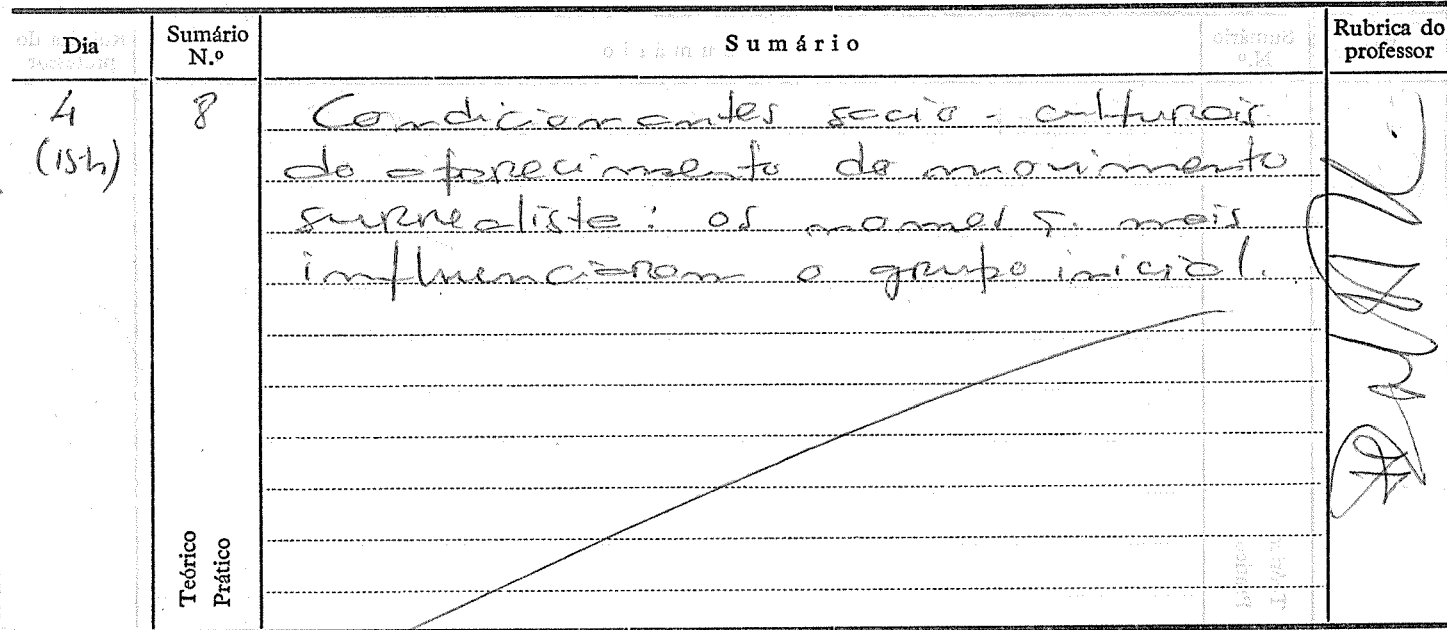 Dia
Sumário N.º
Sumário
Rubrica do professor
4
(15h)
8
Condicionantes socio-culturais
do aparecimento do movimento
surrealista: os nomes q. mais
influenciaram o grupo inicial.
Teórico
Prático